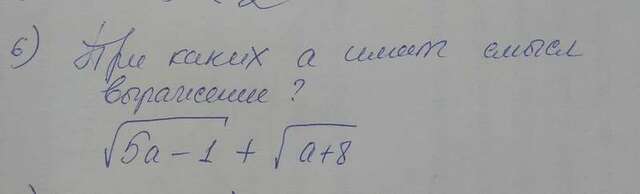 6) При каких a имеет смысл
выражение?
√5a-1 + √a+8